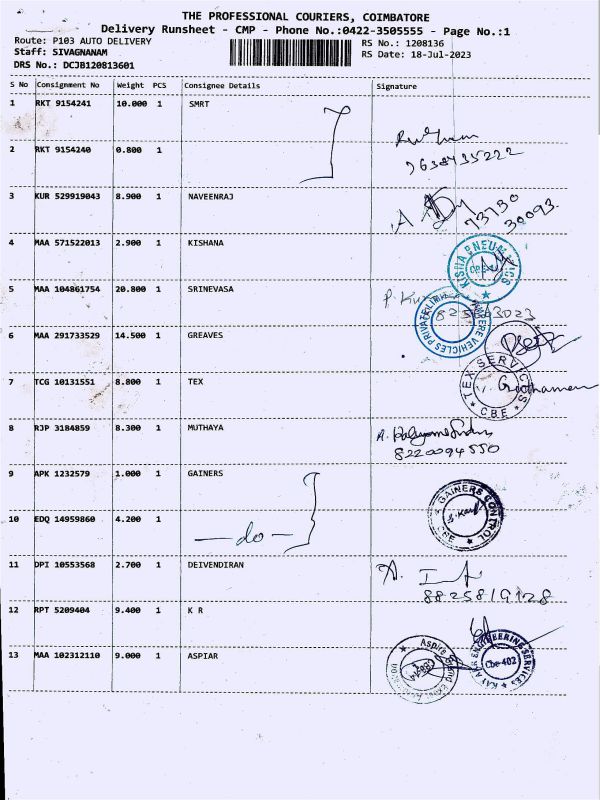 THE PROFESSIONAL COURIERS, COIMBATORE
Delivery Runsheet - CMP - Phone No.:0422-3505555 - Page No.:1
Route: P103 AUTO DELIVERY
RS No.: 1208136
Staff: SIVAGNANAM
RS Date: 18-Jul-2023
DRS No.: DCJB120813601
S No Consignment No Weight PCS Consignee Details Signature
1 RKT 9154241 10.000 1 SMRT
2 RKT 9154240 0.800 1
7638435222
3 KUR 529919043 8.900 1 NAVEENRAJ
73730
30093
4 MAA 571522013 2.900 1 KISHANA
5 MAA 104861754 20.800 1 SRINEVASA
6 MAA 291733529 14.500 1 GREAVES
7 TCG 10131551 8.800 1 TEX
TEX SERVICES
CBE
8 RJP 3184859 8.300 1 MUTHAYA
8220094550
9 APK 1232579 1.000 1 GAINERS
GAINERS CONTROL
CBE
10 EDQ 14959860 4.200 1 -do-
11 DPI 10553568 2.700 1 DEIVENDIRAN
8825819128
12 RPT 5209404 9.400 1 K R
13 MAA 102312110 9.000 1 ASPIAR
Aspire
ENGINEERING SERVICES
Cbe-402